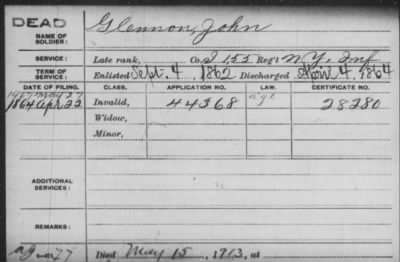 DEAD
NAME OF SOLDIER: Glennon, John
SERVICE: Late rank, Co. I 155 Reg't N.Y. Inf
TERM OF SERVICE: Enlisted Sept. 4, 1862 Discharged April 4, 1864
DATE OF FILING. CLASS. APPLICATION NO. LAW. CERTIFICATE NO.
1907 May 27
1864 Apr 22 Invalid, 44368 age 28280
Widow,
Minor,
ADDITIONAL SERVICES:
REMARKS:
77 Died May 15, 1913, at